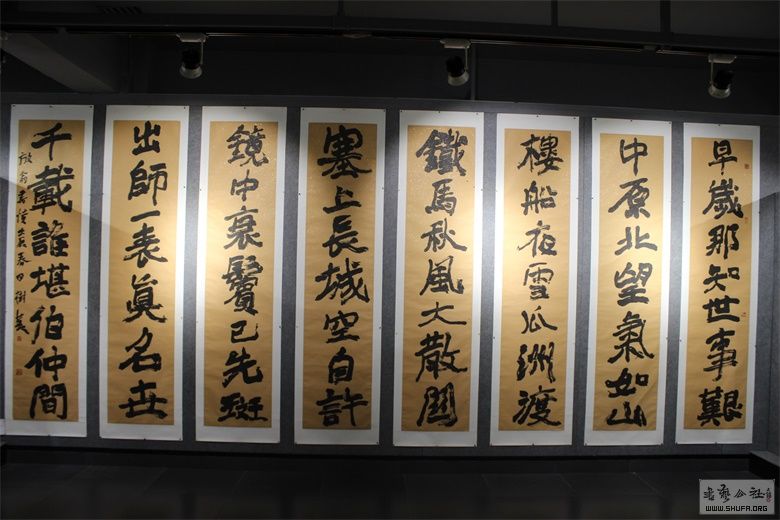 早歲那知世事艱
中原北望氣如山
樓船夜雪瓜洲渡
鐵馬秋風大散關
塞上長城空自許
鏡中衰鬢已先斑
出師一表眞名世
千載誰堪伯仲間
放翁書憤
書藝公社
WWW.SHUFA.ORG